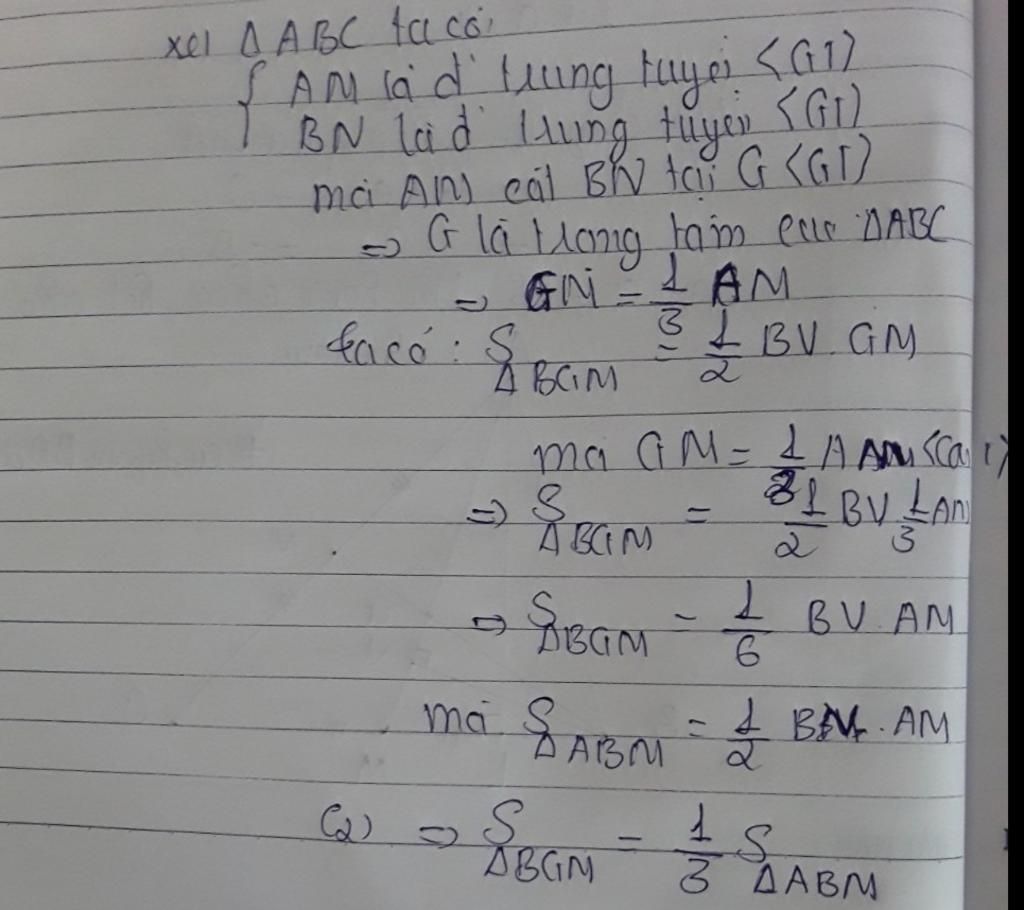 xet ΔABC ta có:
{ AM là đ' trung tuyến <GT)
BN là đ' trung tuyến <GT)
mà AM cắt BN tại G <GT)
=> G là trọng tâm của ΔABC
=> GM = 1/3 AM
ta có: S ΔBGM = 1/2 BV. GM
mà GM = 1/3 AM
=> S ΔBGM = 1/2 BV 1/3 AM
=> S ΔBGM = 1/6 BV. AM
mà S ΔABM = 1/2 . AM
(2) => S ΔBGM = 1/3 S ΔABM